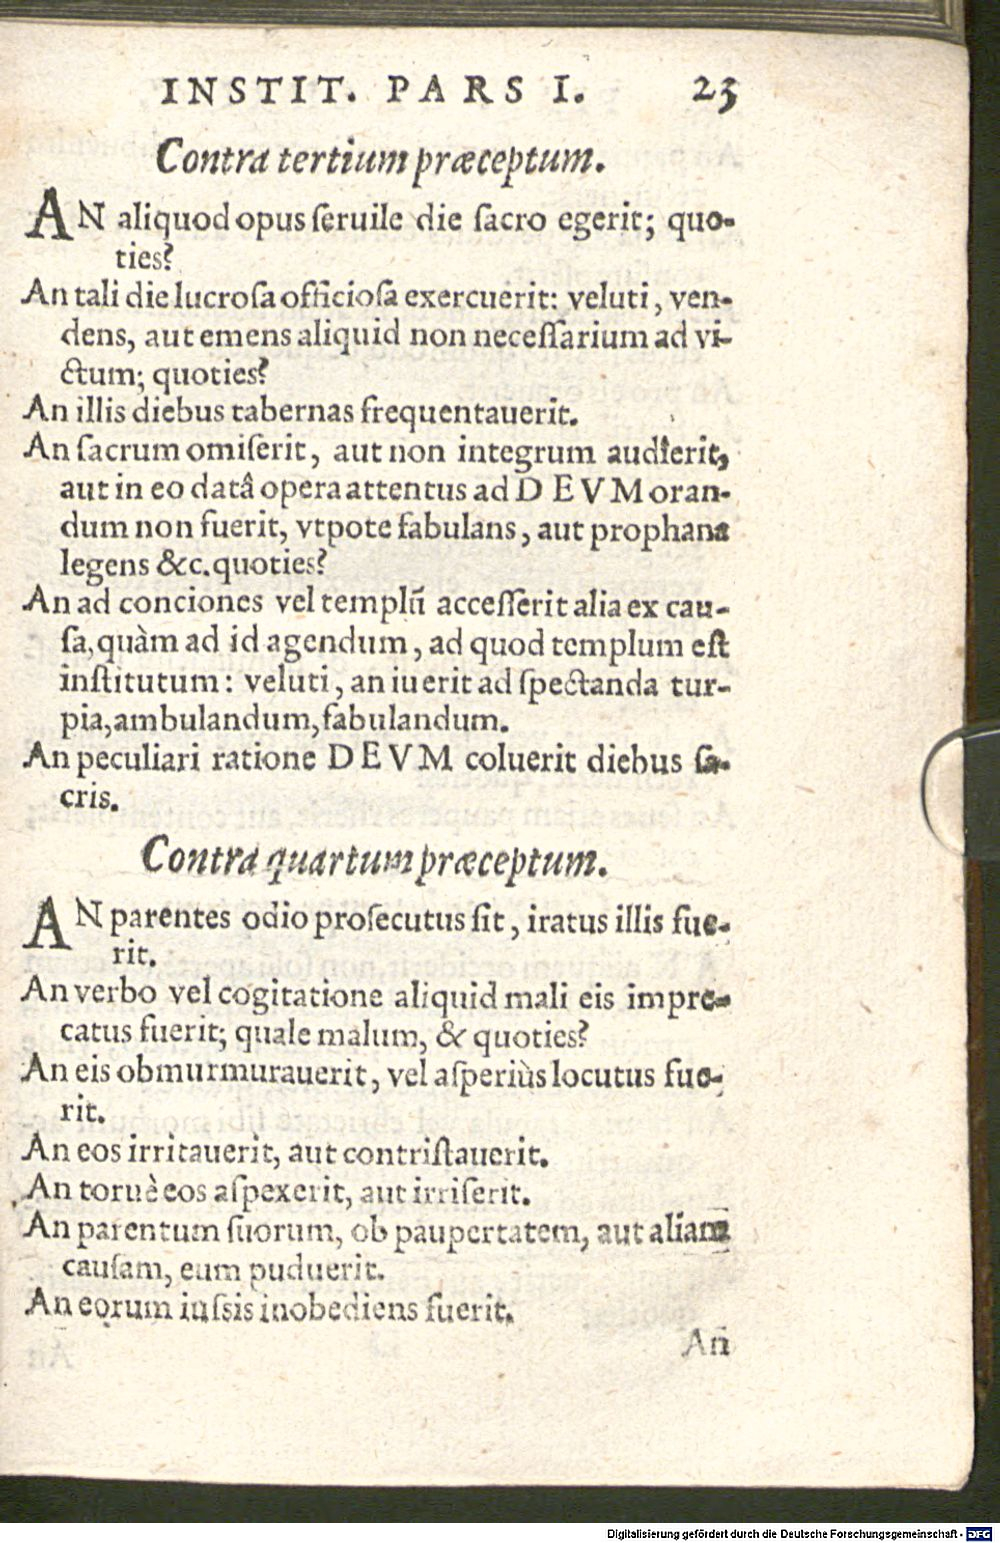 INSTIT. PARS I. 23
Contra tertium præceptum.
AN aliquod opus ſeruile die ſacro egerit; quo-
ties?
An tali die lucroſa officioſa exercuerit: veluti, ven-
dens, aut emens aliquid non neceſſarium ad vi-
ctum; quoties?
An illis diebus tabernas frequentauerit.
An ſacrum omiſerit, aut non integrum audierit,
aut in eo datâ opera attentus ad DEVM oran-
dum non fuerit, vtpote fabulans, aut prophana
legens &c. quoties?
An ad conciones vel templũ acceſſerit alia ex cau-
ſa, quàm ad id agendum, ad quod templum eſt
inſtitutum: veluti, an iuerit ad ſpectanda tur-
pia, ambulandum, fabulandum.
An peculiari ratione DEVM coluerit diebus ſa-
cris.
Contra quartum præceptum.
AN parentes odio proſecutus ſit, iratus illis fue-
rit.
An verbo vel cogitatione aliquid mali eis impre-
catus fuerit; quale malum, & quoties?
An eis obmurmurauerit, vel aſperiùs locutus fue-
rit.
An eos irritauerit, aut contriſtauerit.
An toruè eos aſpexerit, aut irriſerit.
An parentum ſuorum, ob paupertatem, aut aliam
cauſam, eum puduerit.
An eorum iuſsis inobediens fuerit.
An
Digitalisierung gefördert durch die Deutsche Forschungsgemeinschaft - DFG